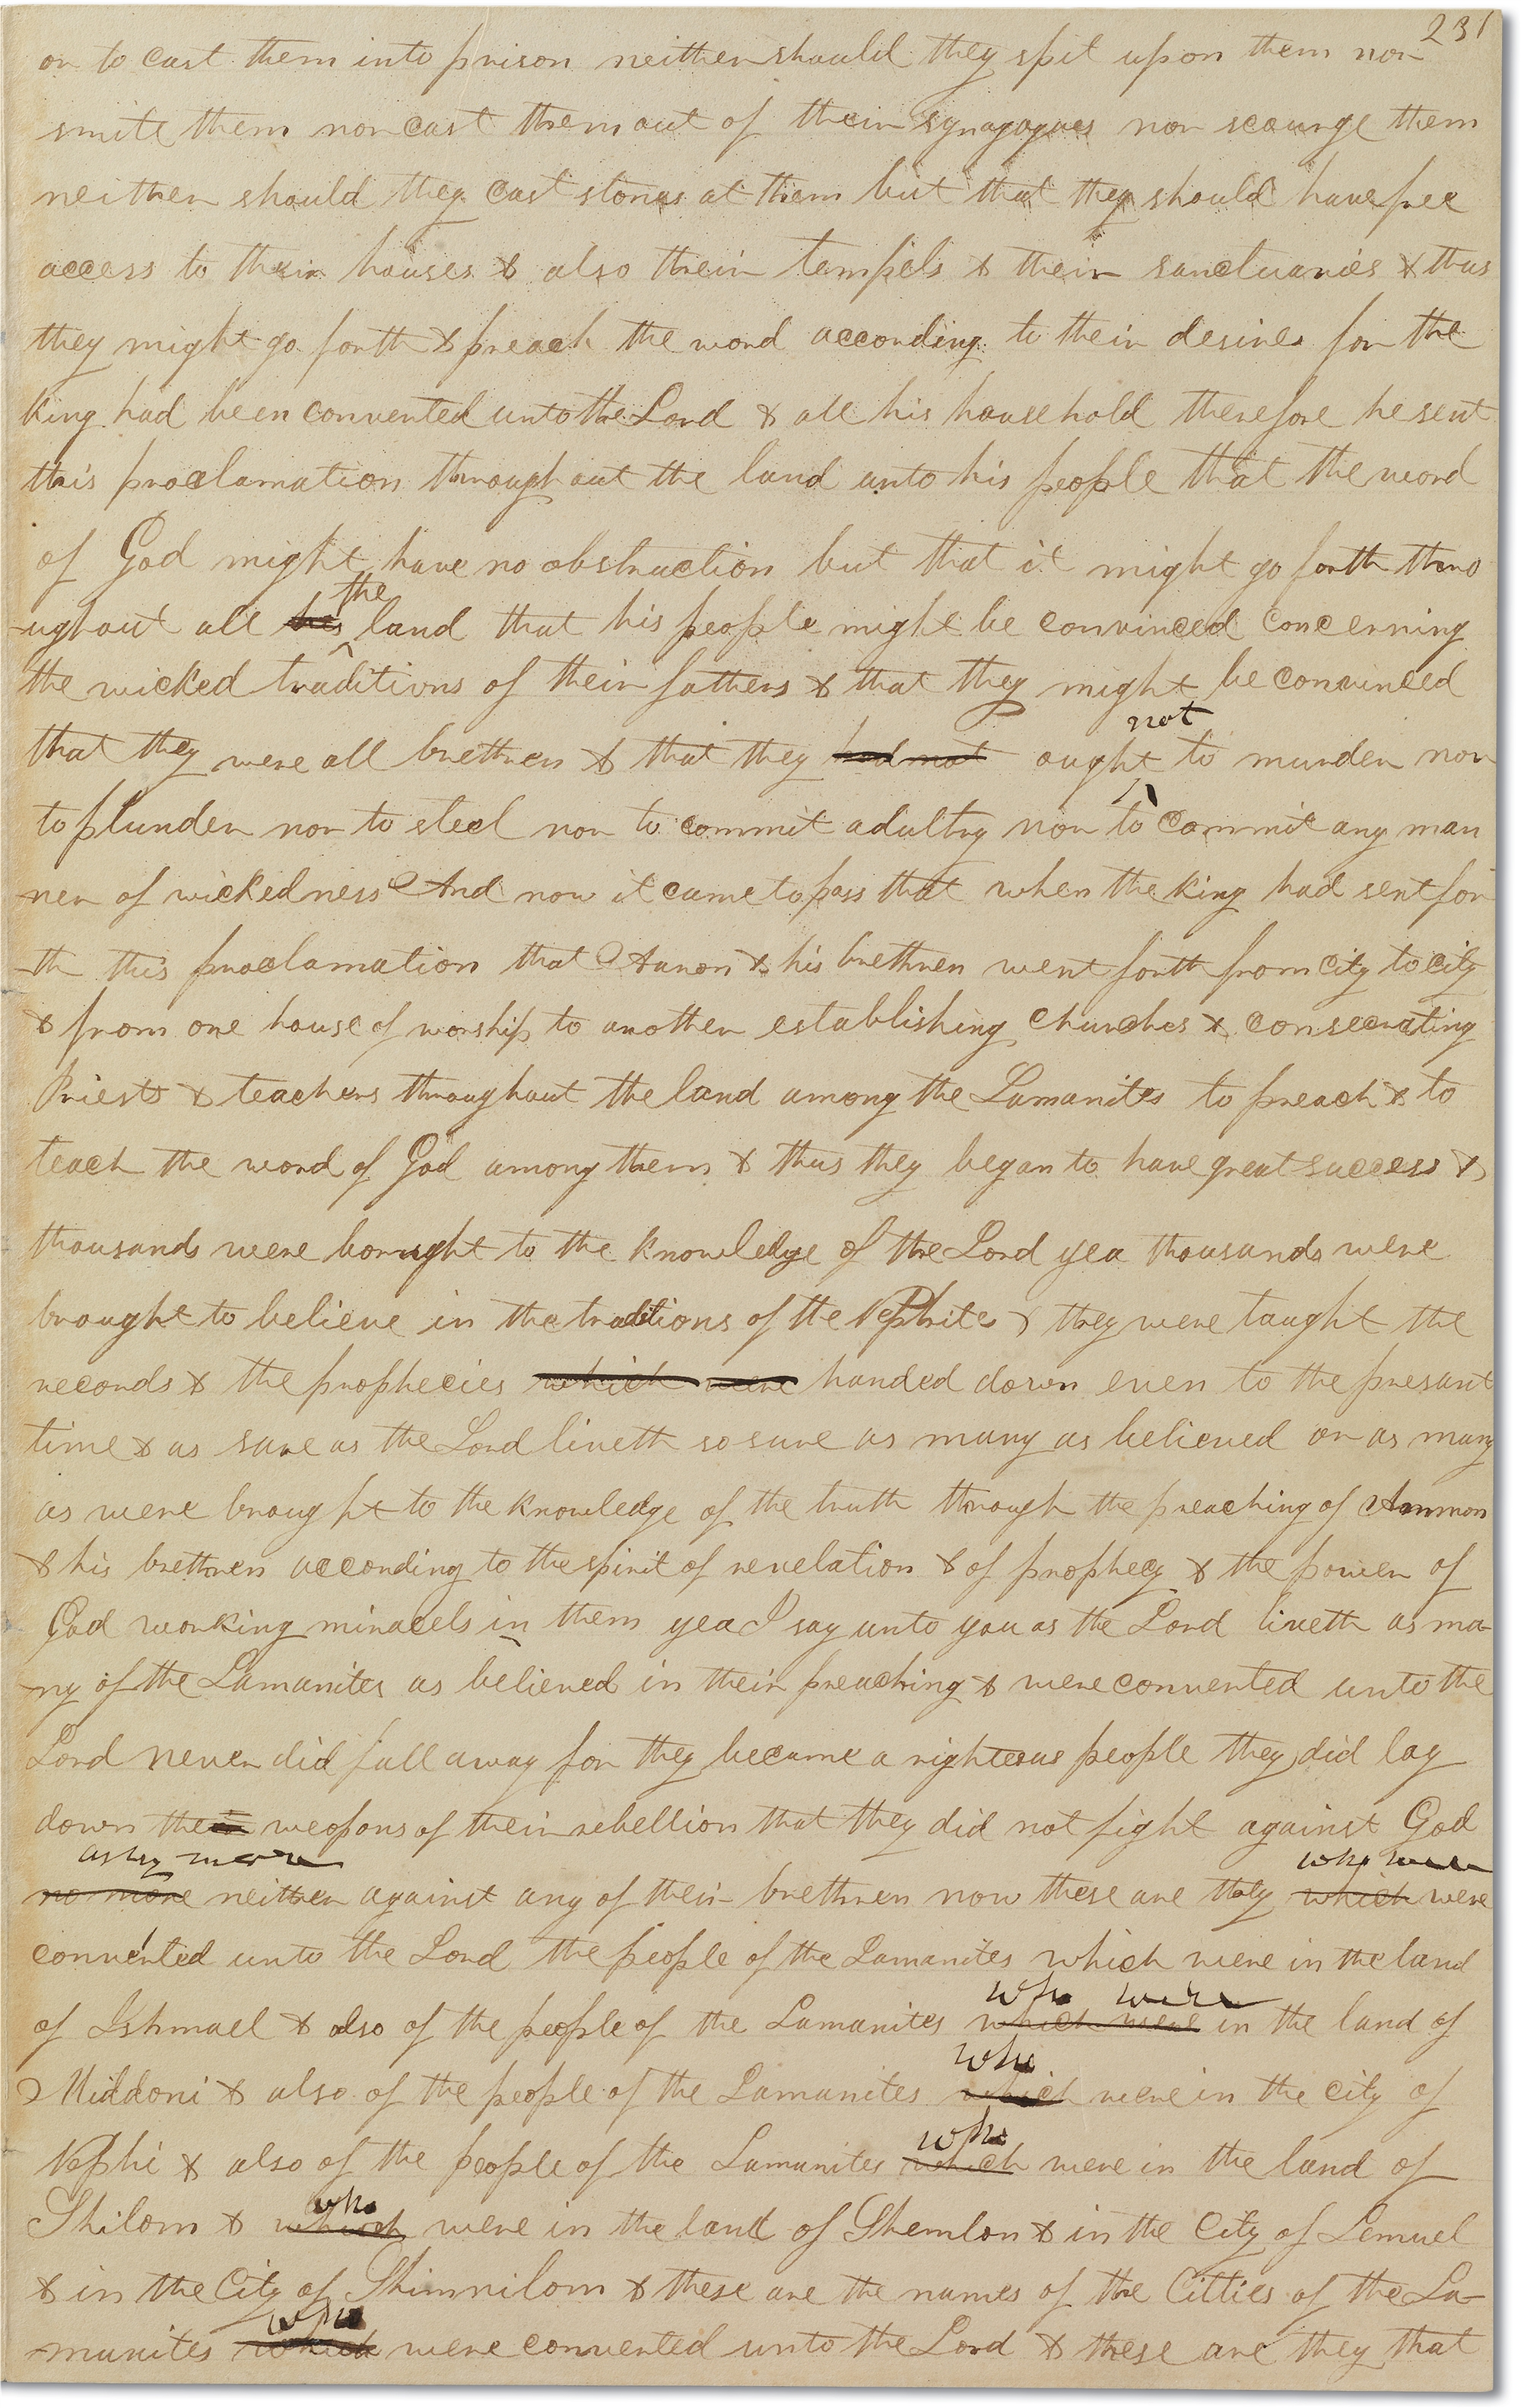 231
or to cast them into prison neither should they spit upon them nor
smite them nor cast them out of their synagogues nor scourge them
neither should they cast stones at them but that they should have free
access to their houses & also their tempels & their sanctuaries & thus
they might go forth & preach the word according to their desires for the
King had been converted unto the Lord & all his house hold therefore he sent
this proclamation throughout the land unto his people that the word
of God might have no obstruction but that it might go forth thro
the
-ughout all his land that his people might be convinced concerning
the wicked traditions of their fathers & that they might be convinced
not
that they were all brethren & that they had not ought to murder nor
to plunder nor to steel nor to commit adultry nor to commit any man
-ner of wickedness And now it came to pass that when the King had sent for
-th this proclamation that Aaron & his brethren went forth from city to city
& from one house of worship to another establishing churches & consecrating
Priests & teachers throughout the land among the Lamanites to preach & to
teach the word of God among them & thus they began to have great success &
thousands were borught to the knowledge of the Lord yea thousands were
brought to believe in the traditions of the Nephites & they were taught the
records & the prophecies which were handed down even to the presant
time & as sure as the Lord liveth so sure as many as believed or as many
as were brought to the knowledge of the truth through the preaching of Ammon
& his brethren according to the spirit of revelation & of prophecy & the power of
God working miracels in them yea I say unto you as the Lord liveth as ma-
-ny of the Lamanites as believed in their preaching & were converted unto the
Lord never did fall away for they became a righteous people they did lay
down their weopons of their rebellion that they did not fight against God
any more who were
no more neither against any of their brethren now these are they which were
converted unto the Lord the people of the Lamanites which were in the land
who were
of Ishmael & also of the people of the Lamanites which were in the land of
who
Middoni & also of the people of the Lamanites which were in the city of
who
Nephi & also of the people of the Lamanites which were in the land of
who
Shilom & which were in the land of Shemlon & in the City of Lemuel
& in the City of Shimnilom & these are the names of the Citties of the La-
who
-manites which were converted unto the Lord & these are they that